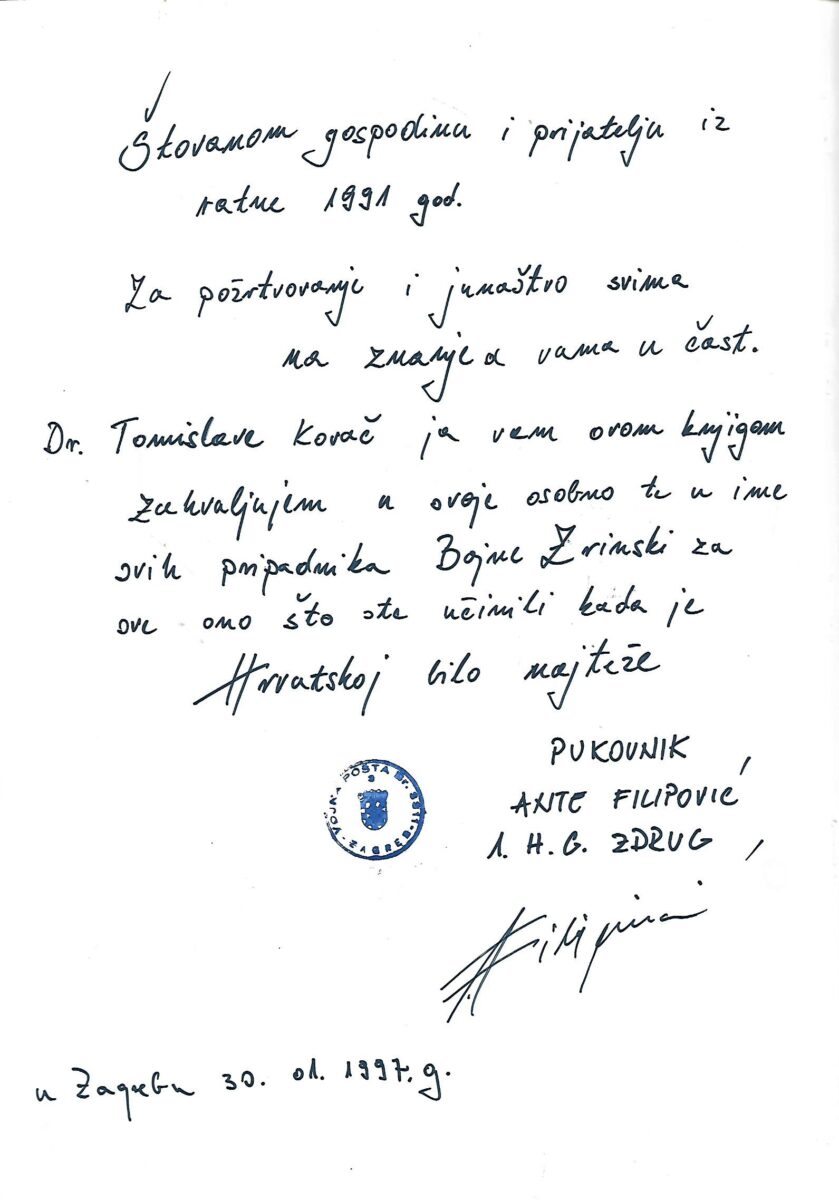 Štovanom gospodinu i prijatelju iz
ratne 1991 god.
Za požrtvovanje i junaštvo svima
na znanje a vama u čast.
Dr. Tomislave Kovač ja vam ovom knjigom
zahvaljujem u svoje osobno te u ime
svih pripadnika Bojne Zrinski za
sve ono što ste učinili kada je
Hrvatskoj bilo najteže
PUKOVNIK
ANTE FILIPOVIĆ
1. H. G. ZDRUG
VOJNA POŠTA Br. 3311
3
ZAGREB
u Zagrebu 30. 01. 1997. g.